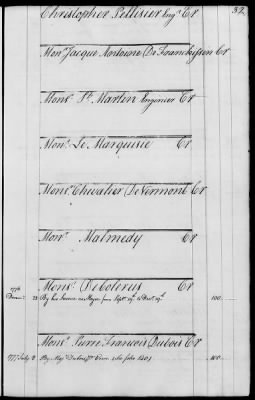 32
Christopher Pellisier Engr. Cr
Monr Jacque Antoine De Franchissen Cr
Monsr. St. Martin Engineer Cr
Monr. Le Marquisie Cr
Monsr. Chevalier De Vermont Cr
Monsr. Malmedy Cr
Monsr. Debolerus Cr
1776
Decemr. 23 By his Service as Major from Septr 19th to Decr 19th 100
Monsr. Pierre Francois Dubois Cr
1777 July 8 By Majr Dubois 400